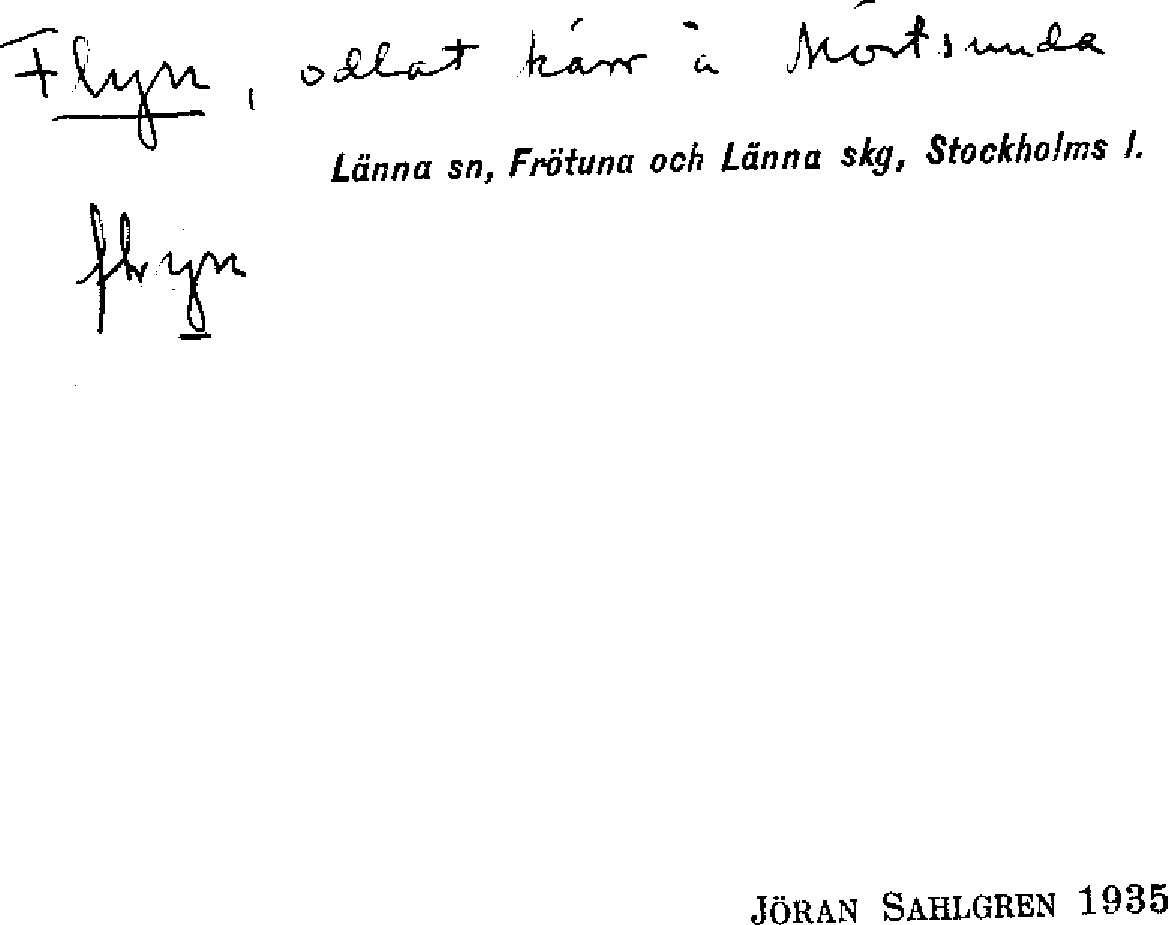 Flyn, odlat kärr å Mörtsunda
Länna sn, Frötuna och Länna skg, Stockholms l.
flyn
JÖRAN SAHLGREN 1935